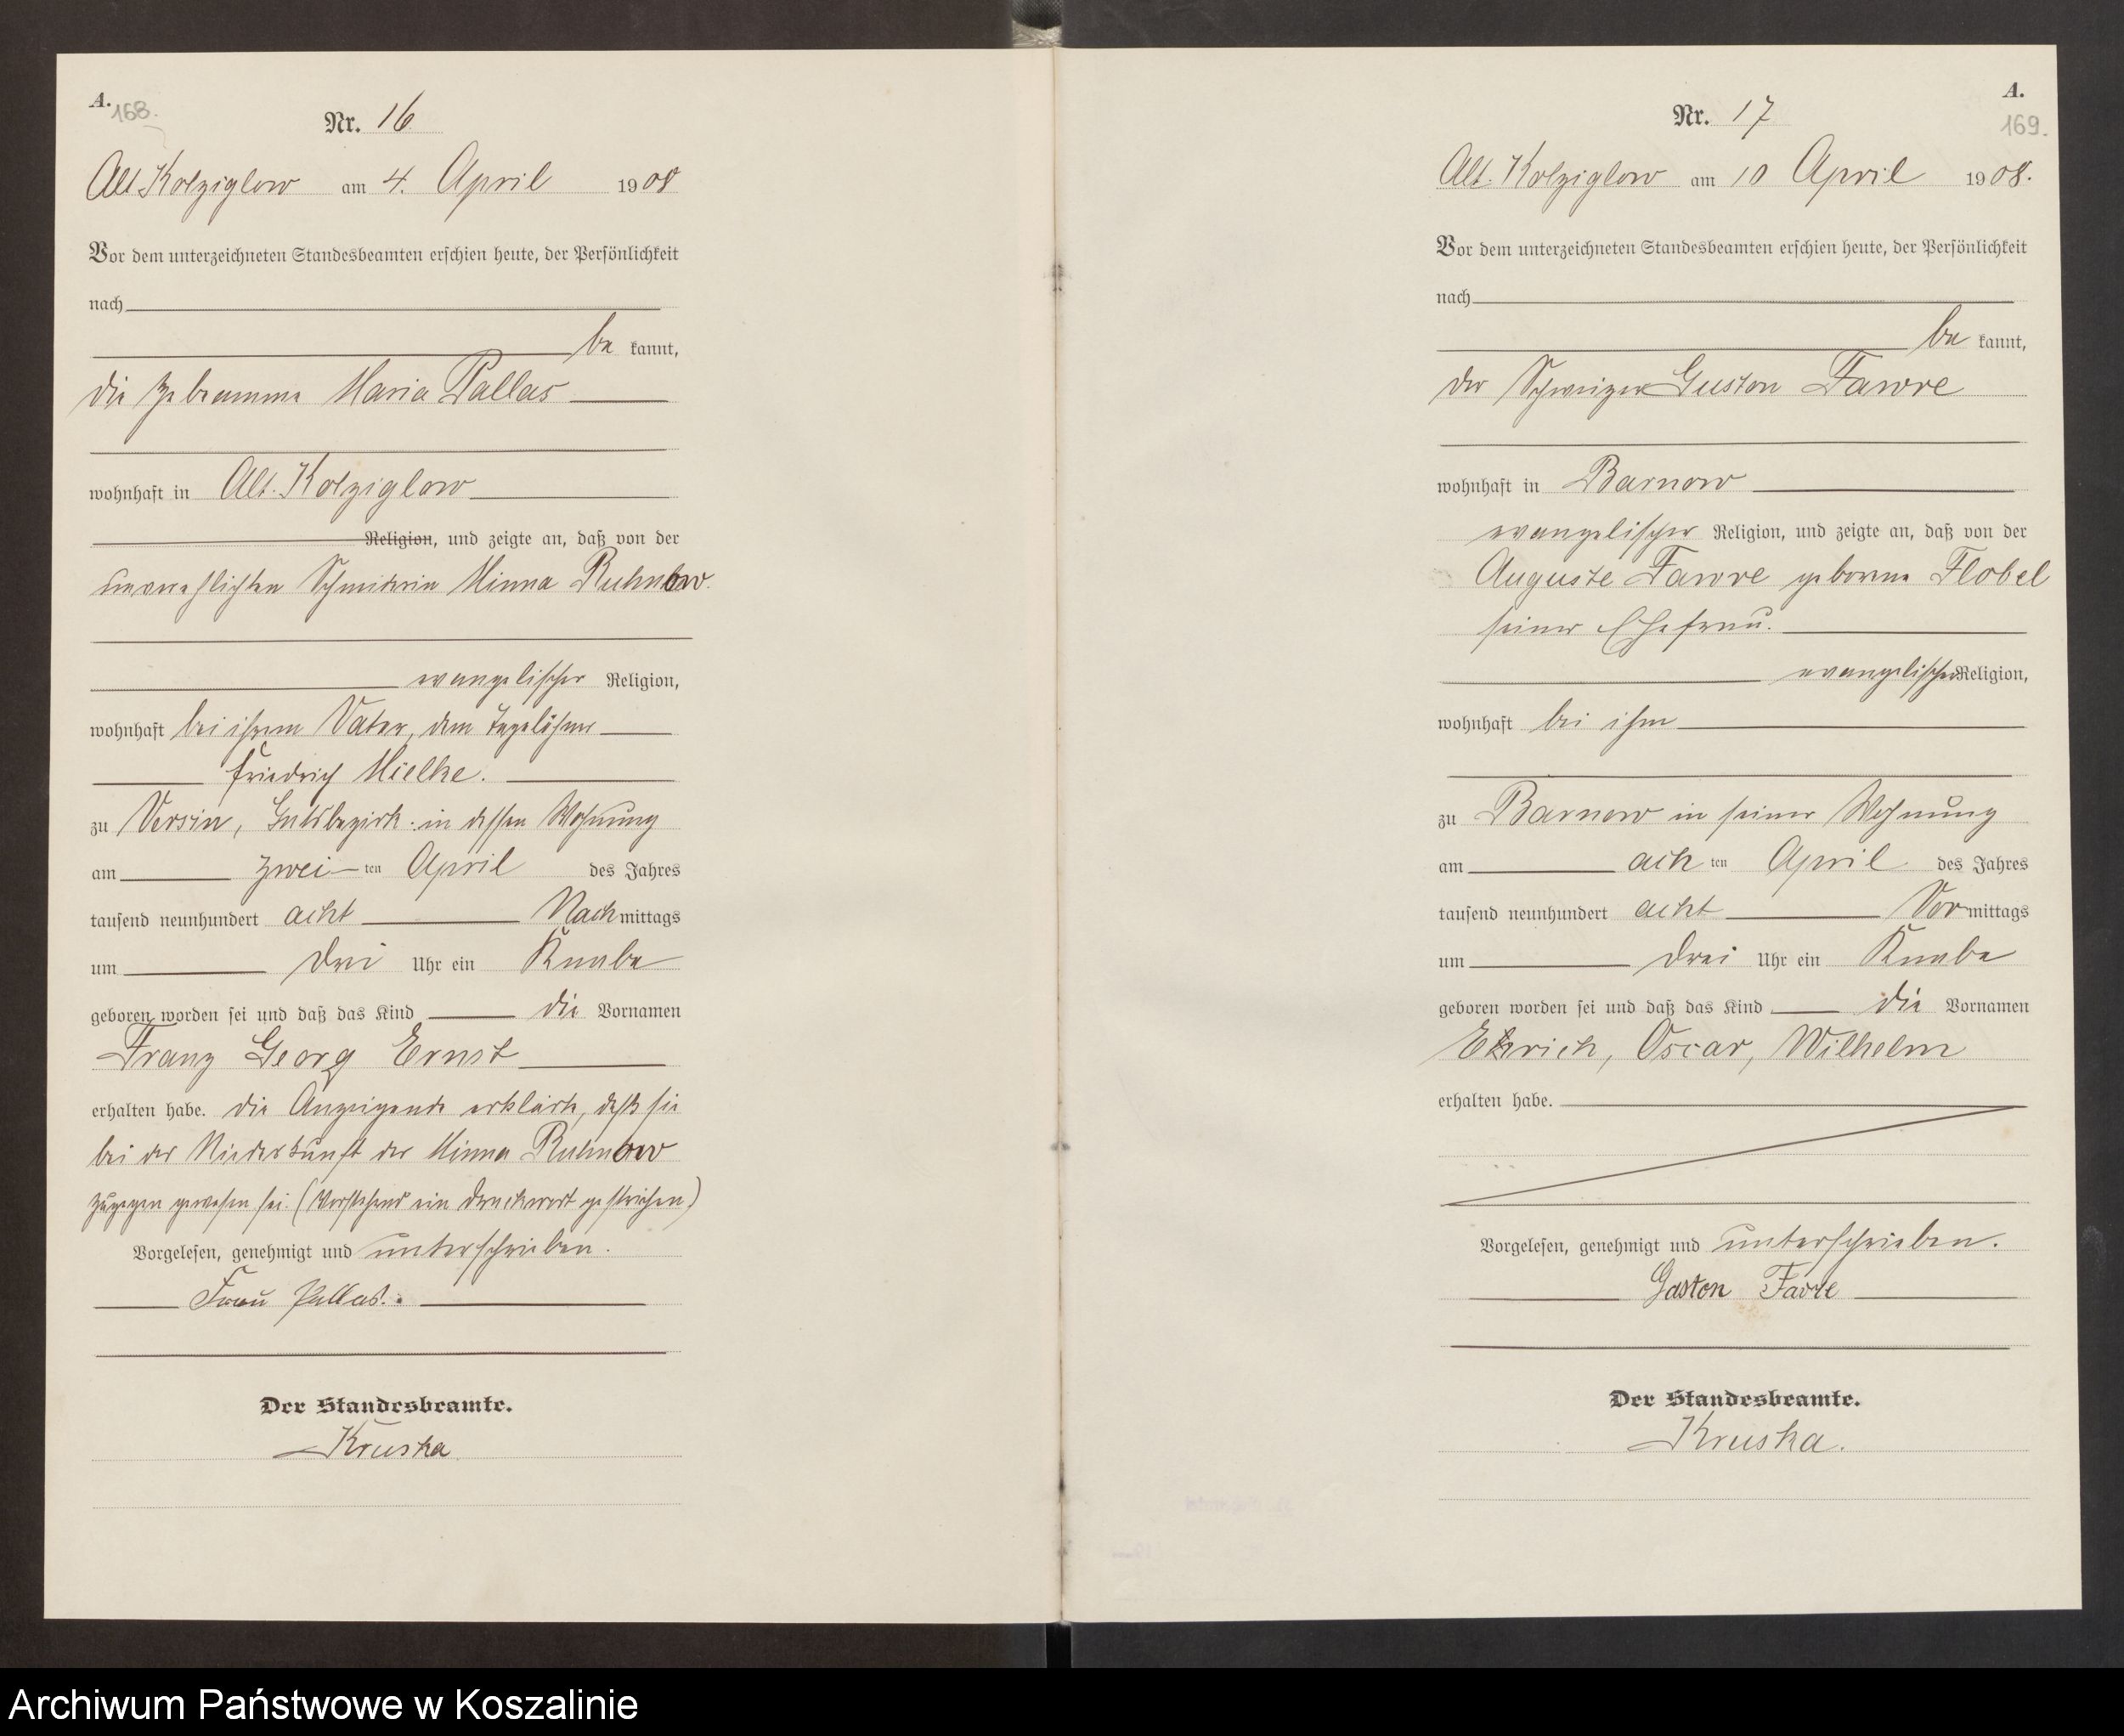 A.
168.
Nr. 16
Alt Kolziglow am 4. April 1908
Vor dem unterzeichneten Standesbeamten erschien heute, der Persönlichkeit
nach
be kannt,
die Hebamme Maria Pallas
wohnhaft in Alt. Kolziglow
Religion, und zeigte an, daß von der
unverehlichten Schneiderin Minna Ruhnow
evangelischer Religion,
wohnhaft bei ihrem Vater, dem Tagelöhner
Friedrich Mielke.
zu Versin, Gutsbezirk in dessen Wohnung
am zwei ten April des Jahres
tausend neunhundert acht Nach mittags
um drei Uhr ein Knabe
geboren worden sei und daß das Kind die Vornamen
Franz Georg Ernst
erhalten habe. Die Anzeigende erklärte, daß sie
bei der Niederkunft der Minna Ruhnow
zugegen gewesen sei. (Vorstehend ein Druckwort gestrichen)
Vorgelesen, genehmigt und unterschrieben.
Frau Pallas.
Der Standesbeamte.
Kruska
A.
169.
Nr. 17
Alt. Kolziglow am 10 April 1908.
Vor dem unterzeichneten Standesbeamten erschien heute, der Persönlichkeit
nach
be kannt,
der Schweizer Guston Fawre
wohnhaft in Barnow
evangelischer Religion, und zeigte an, daß von der
Auguste Fawre geborne Flobel
seiner Ehefrau.
evangelischer Religion,
wohnhaft bei ihm
zu Barnow in seiner Wohnung
am ach ten April des Jahres
tausend neunhundert acht Vor mittags
um drei Uhr ein Knabe
geboren worden sei und daß das Kind die Vornamen
Erich, Oscar, Wilhelm
erhalten habe.
Vorgelesen, genehmigt und unterschrieben.
Gaston Favre
Der Standesbeamte.
Kruska.
Archiwum Państwowe w Koszalinie